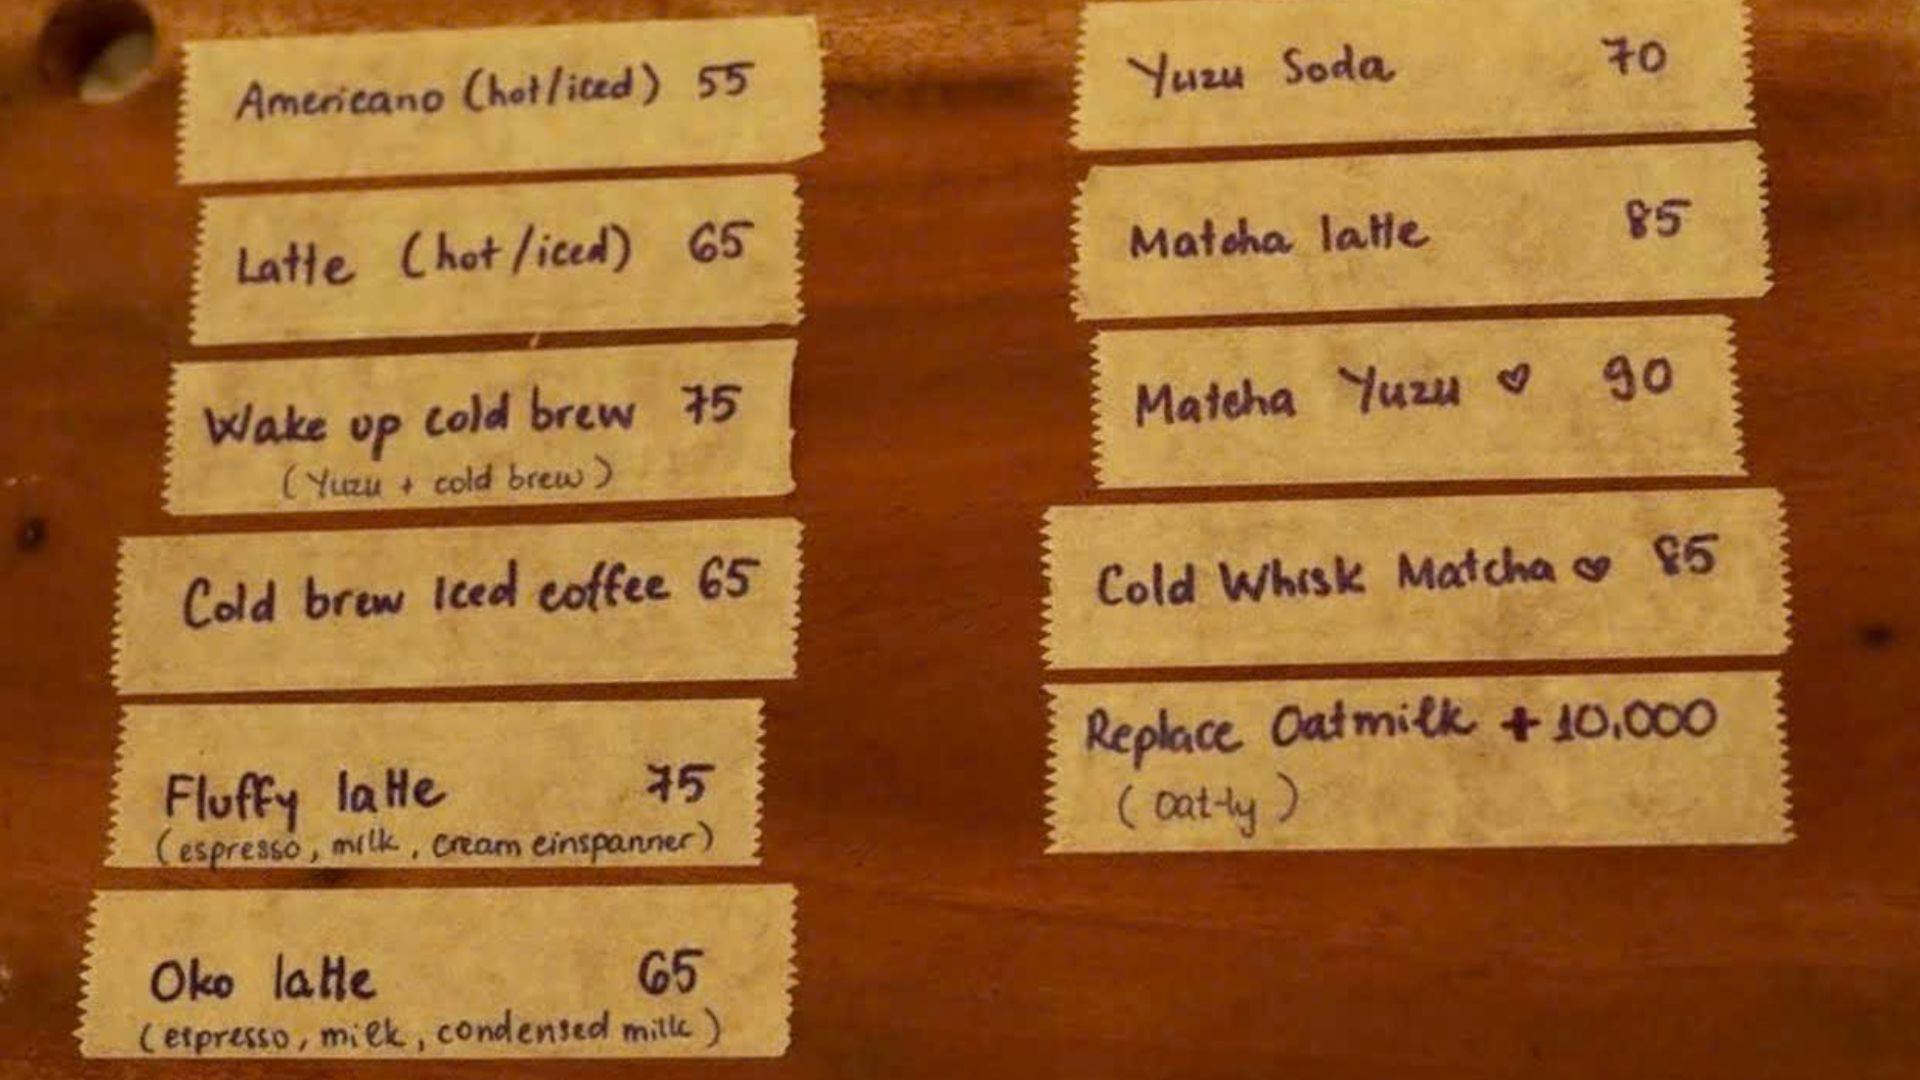 Americano (hot/iced) 55
Latte (hot/iced) 65
Wake up cold brew 75
(Yuzu + cold brew)
Cold brew Iced coffee 65
Fluffy latte 75
(espresso, milk, cream einspanner)
Oko latte 65
(espresso, milk, condensed milk)
Yuzu Soda 70
Matcha latte 85
Matcha Yuzu ♡ 90
Cold Whisk Matcha ♡ 85
Replace Oatmilk + 10.000
(Oat-ly)